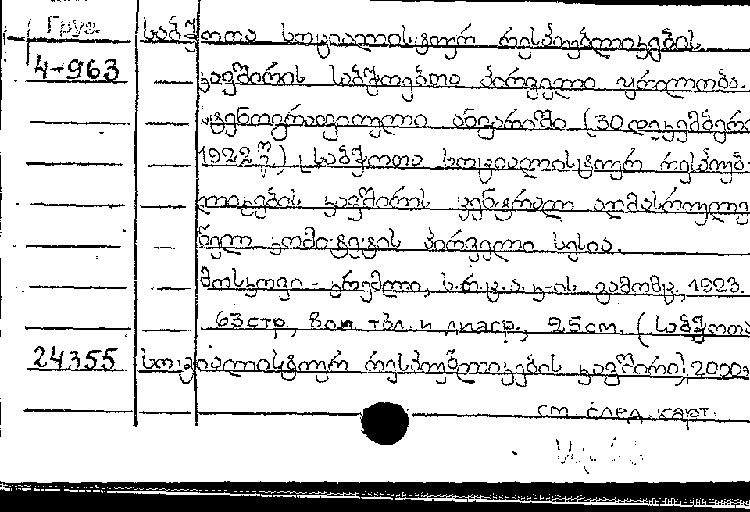 Груз. საბჭოთა სოციალისტურ რესპუბლიკების
4-963 კავშირის საბჭოებთა პირველი ყრილობა.
სტენოგრაფიული ანგარიში (30 დეკემბერი
1922 წ.) საბჭოთა სოციალისტურ რესპუბ-
ლიკების კავშირის ცენტრალ აღმასრულე
ბელ კომიტეტის პირველი სესია.
მოსკოვი - კრემლი, ს.რ.ც.ა.კ-ის გამომც., 1923.
63 стр, вкл. тбл. и диагр., 25 см. (საბჭოთა
24355 სოციალისტურ რესპუბლიკების კავშირი) 2000э
см. след. карт.